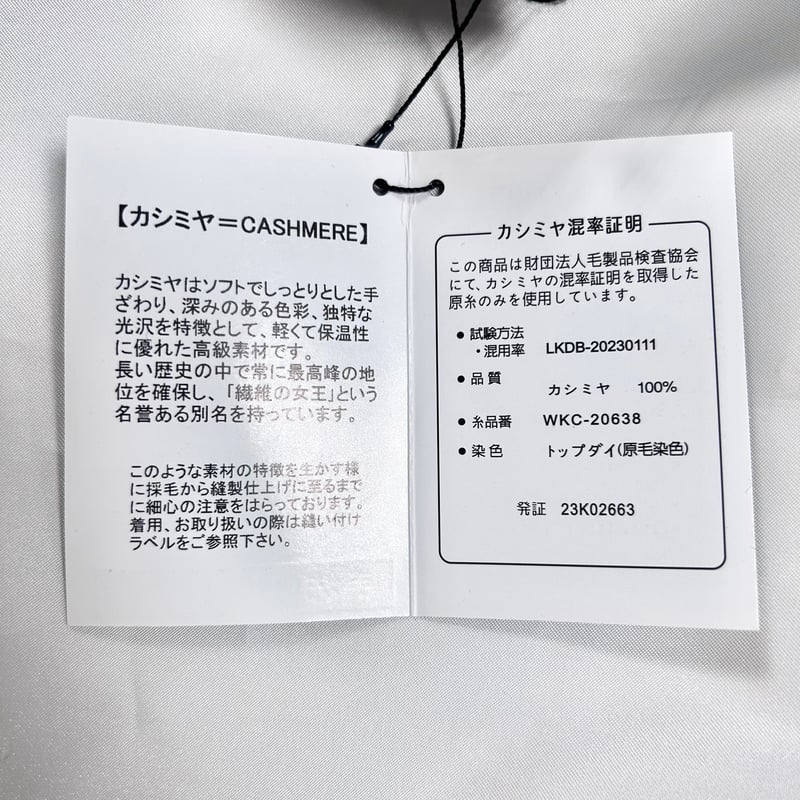 【カシミヤ＝CASHMERE】
カシミヤはソフトでしっとりとした手
ざわり、深みのある色彩、独特な
光沢を特徴として、軽くて保温性
に優れた高級素材です。
長い歴史の中で常に最高峰の地
位を確保し、「繊維の女王」という
名誉ある別名を持っています。
このような素材の特徴を生かす様
に採毛から縫製仕上げに至るまで
に細心の注意をはらっております。
着用、お取り扱いの際は縫い付け
ラベルをご参照下さい。
カシミヤ混率証明
この商品は財団法人毛製品検査協会
にて、カシミヤの混率証明を取得した
原糸のみを使用しています。
● 試験方法
・混用率 LKDB-20230111
● 品質 カシミヤ 100%
● 糸品番 WKC-20638
● 染色 トップダイ(原毛染色)
発証 23K02663